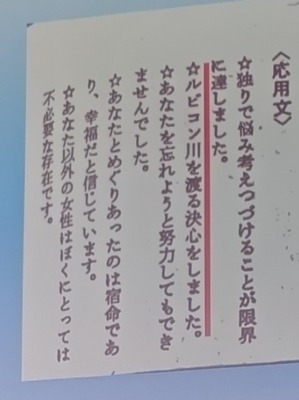 〈応用文〉
☆独りで悩み考えつづけることが限界
に達しました。
☆ルビコン川を渡る決心をしました。
☆あなたを忘れようと努力してもでき
ませんでした。
☆あなたとめぐりあったのは宿命であ
り、幸福だと信じています。
☆あなた以外の女性はぼくにとっては
不必要な存在です。